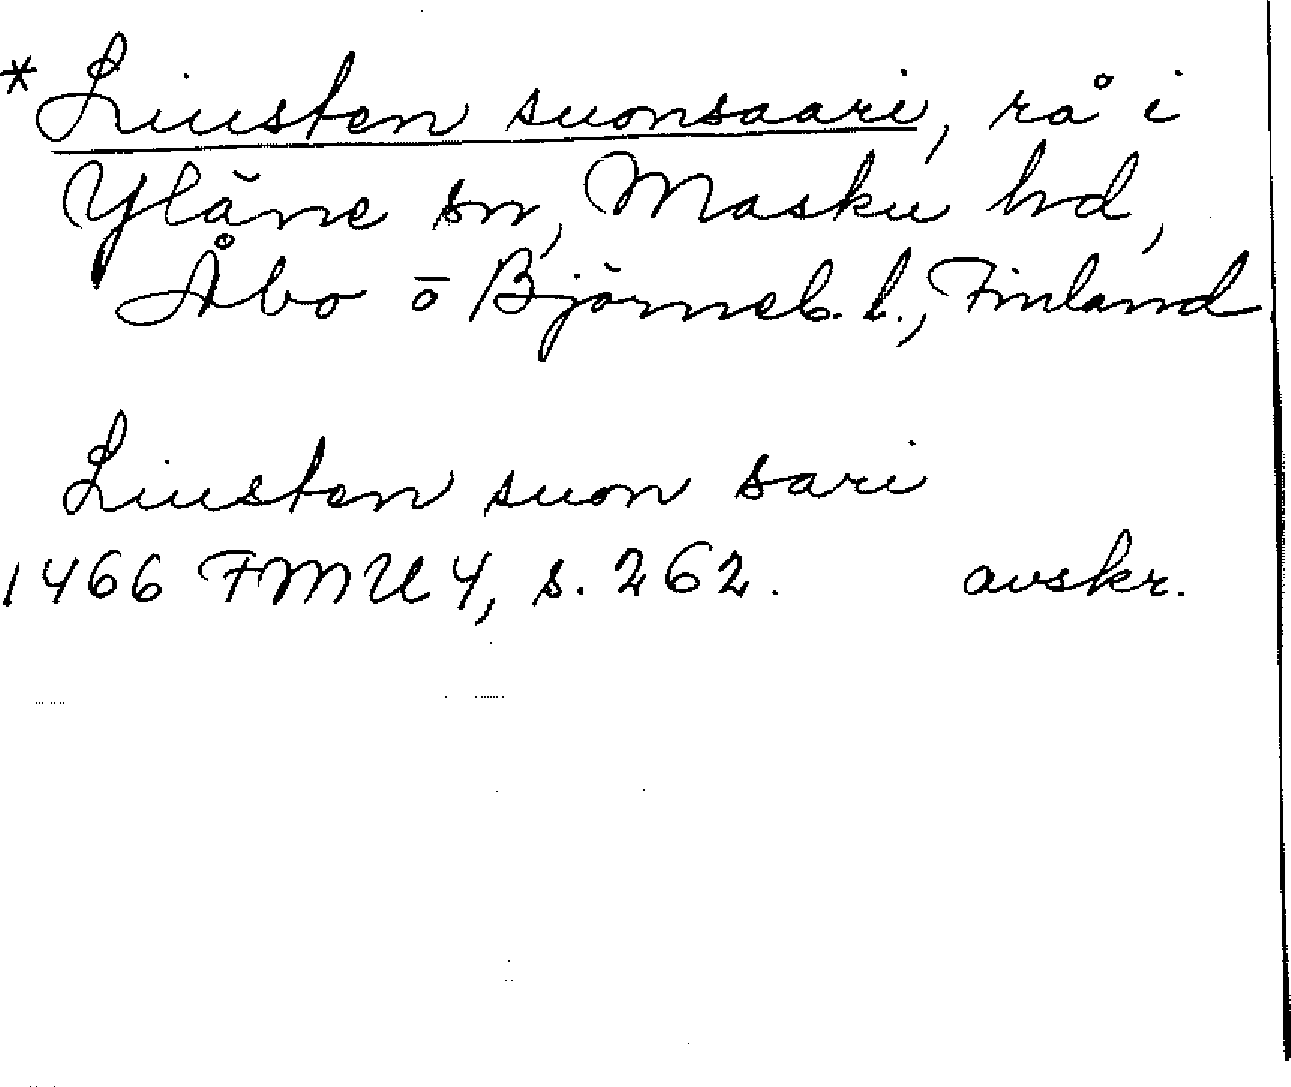 * Liusten suonsaari, rå i
Yläne sn, Masku hd,
Åbo o Björneb. l., Finland
Liusten suon sari
1466 FMU 4, s. 262. avskr.